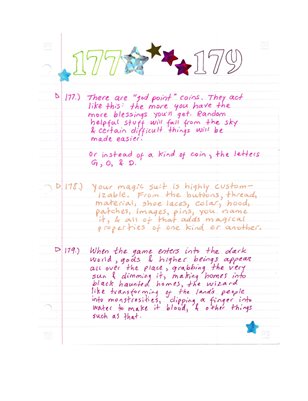 177 179
177.) There are "god point" coins. They act
like this: the more you have the
more blessings you'll get. Random
helpful stuff will fall from the sky
& certain difficult things will be
made easier.
Or instead of a kind of coin, the letters
G, O, & D.
178.) Your magic suit is highly custom-
izable. From the buttons, thread,
material, shoe laces, color, hood,
patches, images, pins, you name
it, & all of that adds magical
properties of one kind or another.
179.) When the game enters into the dark
world, gods & higher beings appear
all over the place, grabbing the very
sun & dimming it, making homes into
black haunted homes, the wizard
like transforming of the land's people
into monstrosities, dipping a finger into
water to make it blood, & other things
such as that.